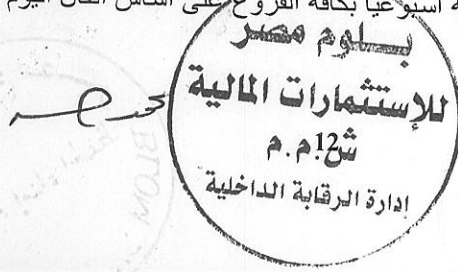 ة أسبوعيا بكافة الفروع على أساس اقفال اليوم
بلوم مصر
للإستثمارات المالية
ش.م.م
12
ادارة الرقابة الداخلية
BLOM